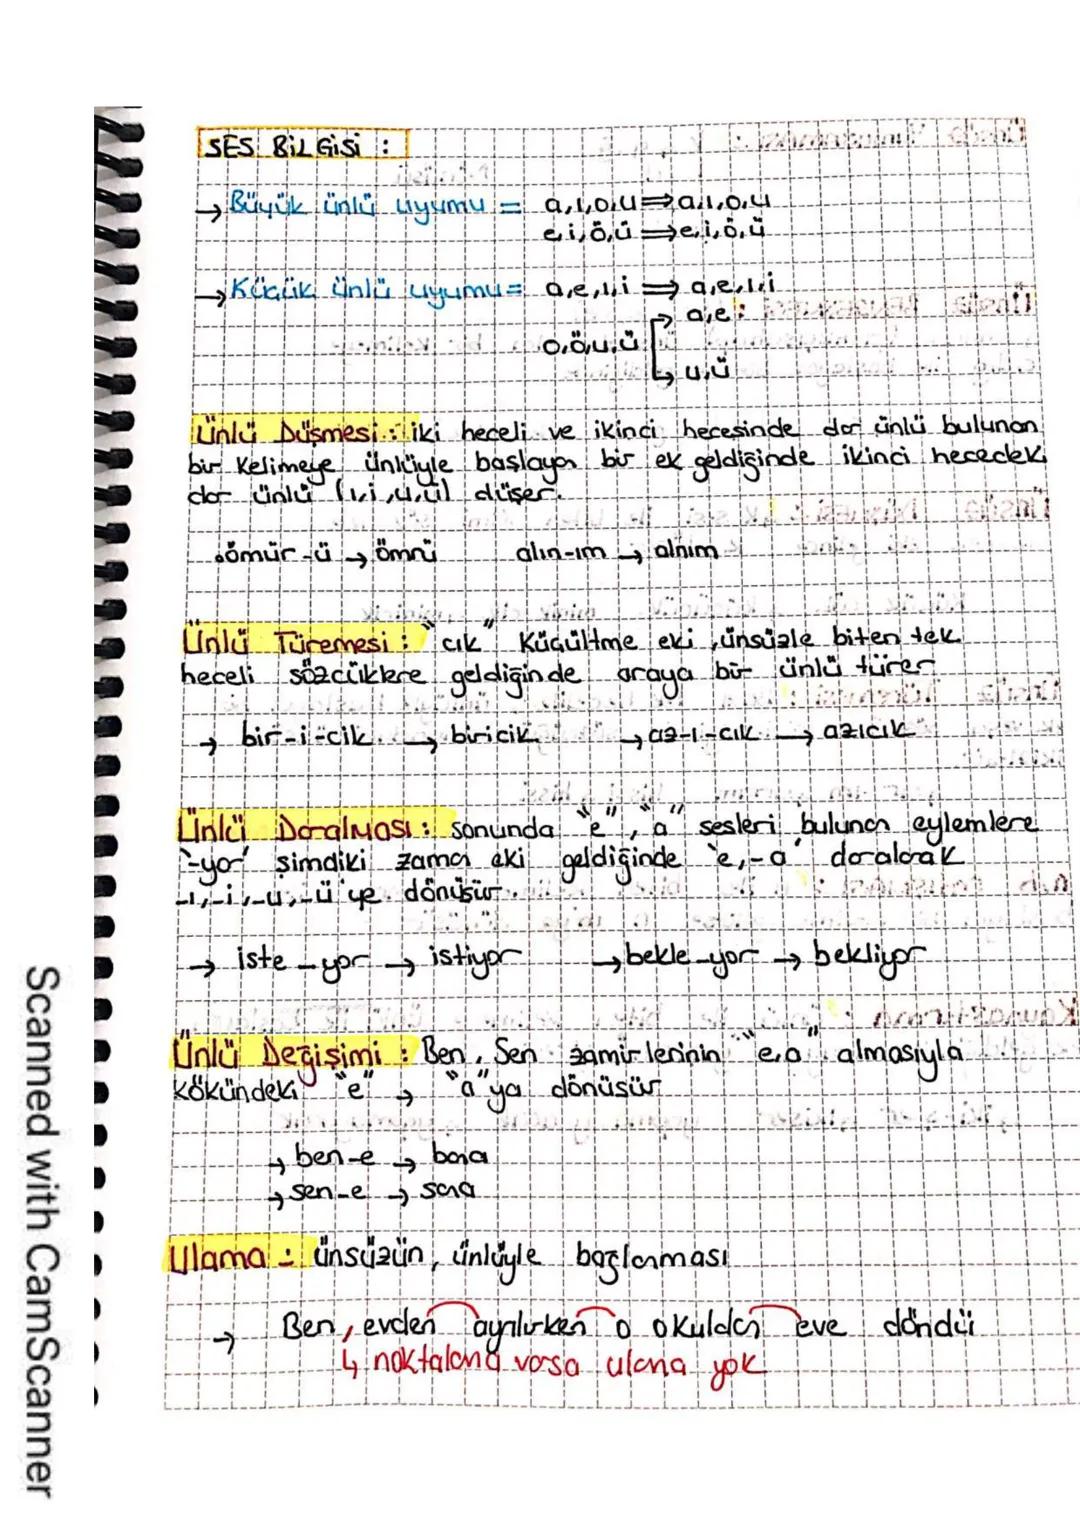 SES BİLGİSİ :
→ Büyük ünlü uyumu = a,ı,o,u ⇒ a,ı,o,u
e,i,ö,ü ⇒ e,i,ö,ü
→ Küçük ünlü uyumu = a,e,ı,i ⇒ a,e,ı,i
→ a,e
o,ö,u,ü
↳ u,ü
Ünlü Düşmesi : iki heceli ve ikinci hecesinde dar ünlü bulunan
bir kelimeye ünlüyle başlayan bir ek geldiğinde ikinci hecedeki
dar ünlü (ı,i,u,ü) düşer.
ömür-ü → ömrü alın-ım → alnım
Ünlü Türemesi : "cık" Küçültme eki, ünsüzle biten tek
heceli sözcüklere geldiğinde araya bir ünlü türer
→ bir-i-cik → biricik → az-ı-cık → azıcık
Ünlü Daralması : sonunda "e", "a" sesleri bulunan eylemlere
"-yor" şimdiki zaman eki geldiğinde "e,-a" daralarak
-ı,-i,-u,-ü'ye dönüşür.
→ iste-yor → istiyor → bekle-yor → bekliyor
Ünlü Değişimi : Ben, Sen zamirlerinin "e,a" almasıyla
kökündeki "e" → "a"ya dönüşür
→ ben-e → bana
→ sen-e → sana
Ulama : ünsüzün, ünlüyle bağlanması
→ Ben, evden ayrılırken o okuldan eve döndü
↳ noktalama varsa ulama yok
Scanned with CamScanner